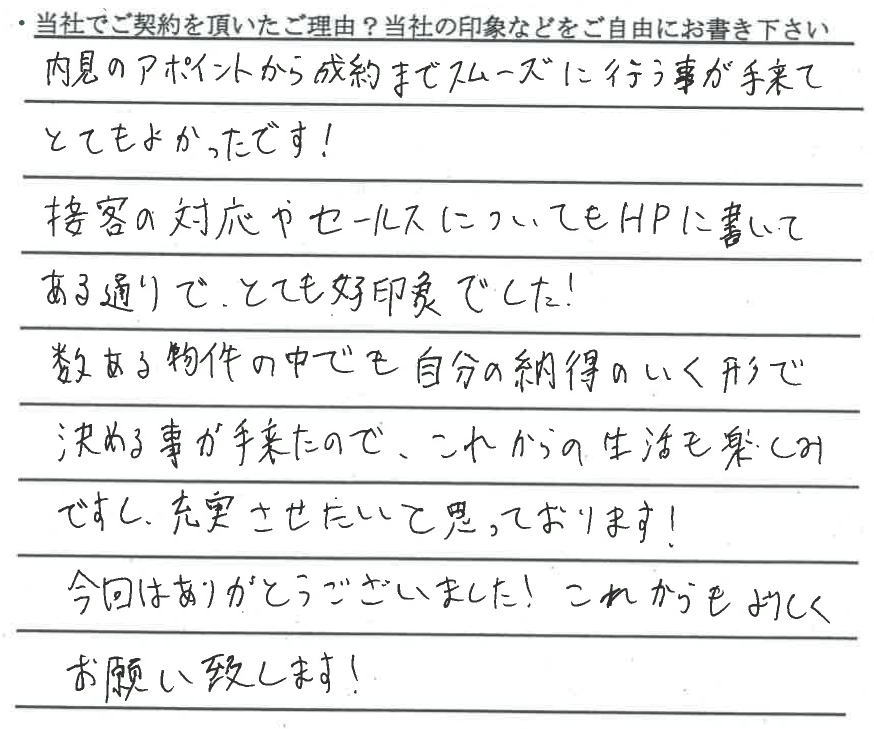 ・当社でご契約を頂いたご理由？当社の印象などをご自由にお書き下さい
内見のアポイントから成約までスムーズに行う事が手来て
とてもよかったです！
接客の対応やセールスについてもHPに書いて
ある通りで、とても好印象でした！
数ある物件の中でも自分の納得のいく形で
決める事が手来たので、これからの生活も楽しみ
ですし、充実させたいと思っております！
今回はありがとうございました！これからもよろしく
お願い致します！